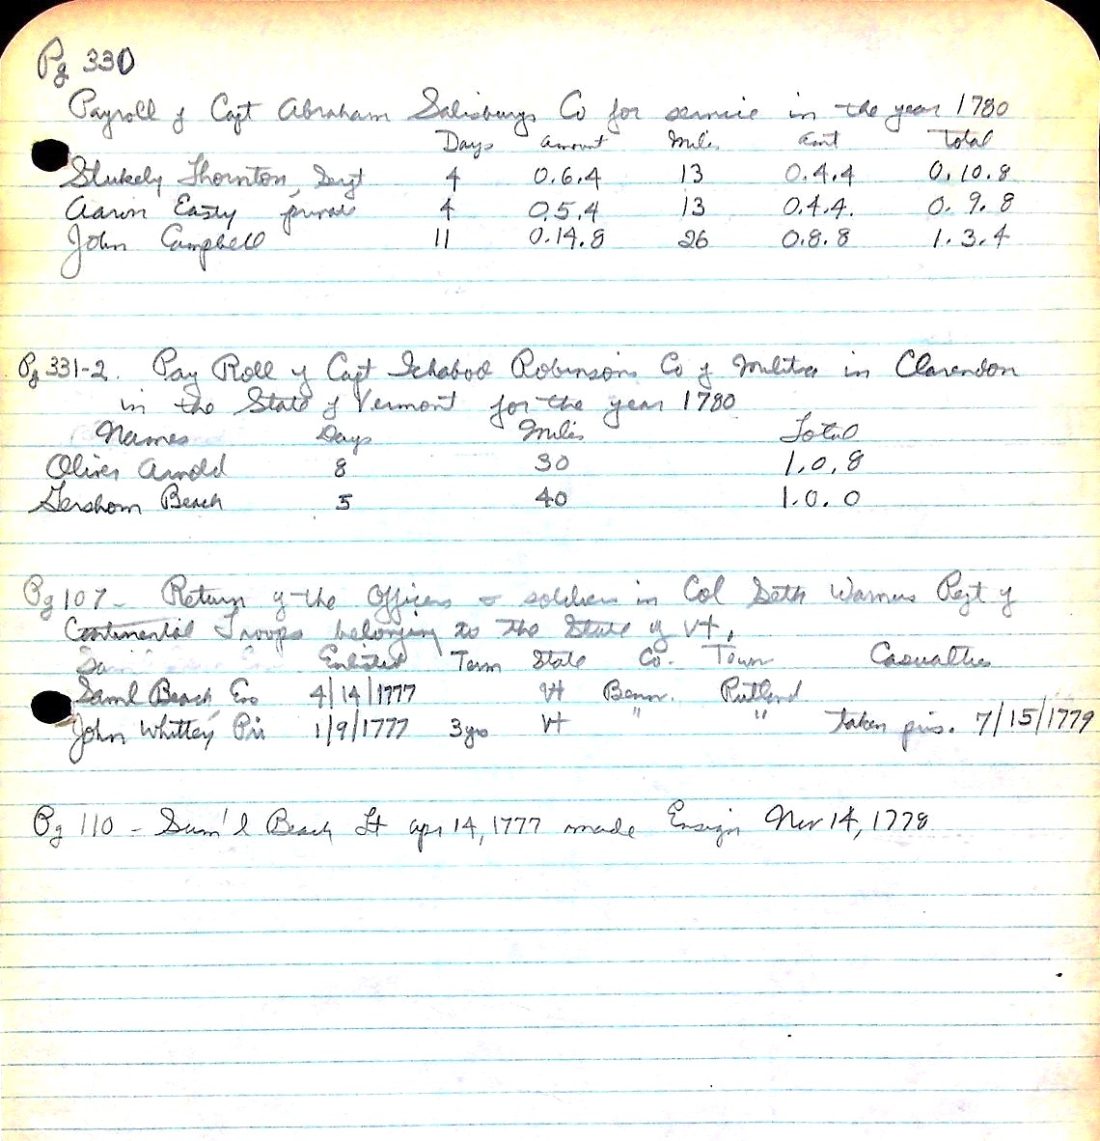 Pg 330
Payroll of Capt Abraham Salisburys Co for service in the year 1780
Days amount Miles amt Total
Stukely Thornton, Sergt 4 0.6.4 13 0.4.4 0.10.8
Aaron Easty private 4 0.5.4 13 0.4.4. 0.9.8
John Campbell 11 0.14.8 26 0.8.8 1.3.4
Pg 331-2. Pay Roll of Capt Ichabod Robinsons Co of Militia in Clarendon
in the State of Vermont for the year 1780
Names Days Miles Total
Oliver Arnold 8 30 1.0.8
Gershom Beach 5 40 1.0.0
Pg 107 - Return of the Officers & soldiers in Col Seth Warners Regt of
Continental Troops belonging to the State of Vt.
Enlisted Term State Co. Town Casualties
Saml Beach, Ens 4/14/1777 Vt Benn. Rutland
John Whittey Pri 1/9/1777 3 yrs Vt " " taken pris. 7/15/1779
Pg 110 - Sam'l Beach Lt apr 14, 1777 made Ensign Nov 14, 1778